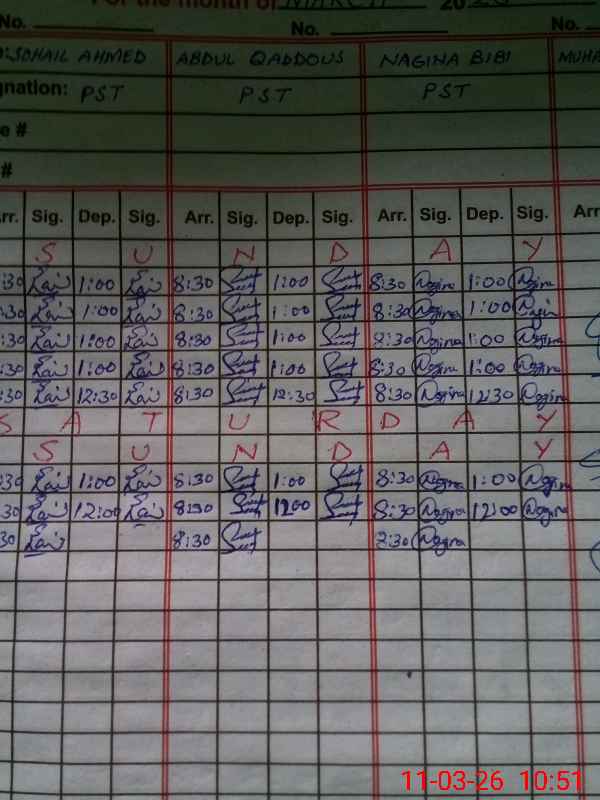 For the month of MARCH 20 26
No. No. No.
SOHAIL AHMED ABDUL QADDOUS NAGINA BIBI MUHA
gnation: PST PST PST
e #
#
Arr. Sig. Dep. Sig. Arr. Sig. Dep. Sig. Arr. Sig. Dep. Sig. Arr
S U N D A Y
:30 1:00 8:30 1:00 8:30 Nagina 1:00 Nagina
:30 1:00 8:30 1:00 8:30 Nagina 1:00 Nagina
:30 1:00 8:30 1:00 8:30 Nagina 1:00 Nagina
:30 1:00 8:30 1:00 8:30 Nagina 1:00 Nagina
:30 12:30 8:30 12:30 8:30 Nagina 12:30 Nagina
S A T U R D A Y
S U N D A Y
:30 1:00 8:30 1:00 8:30 Nagina 1:00 Nagina
:30 12:00 8:30 12:00 8:30 Nagina 12:00 Nagina
:30 8:30 8:30 Nagina
11-03-26 10:51